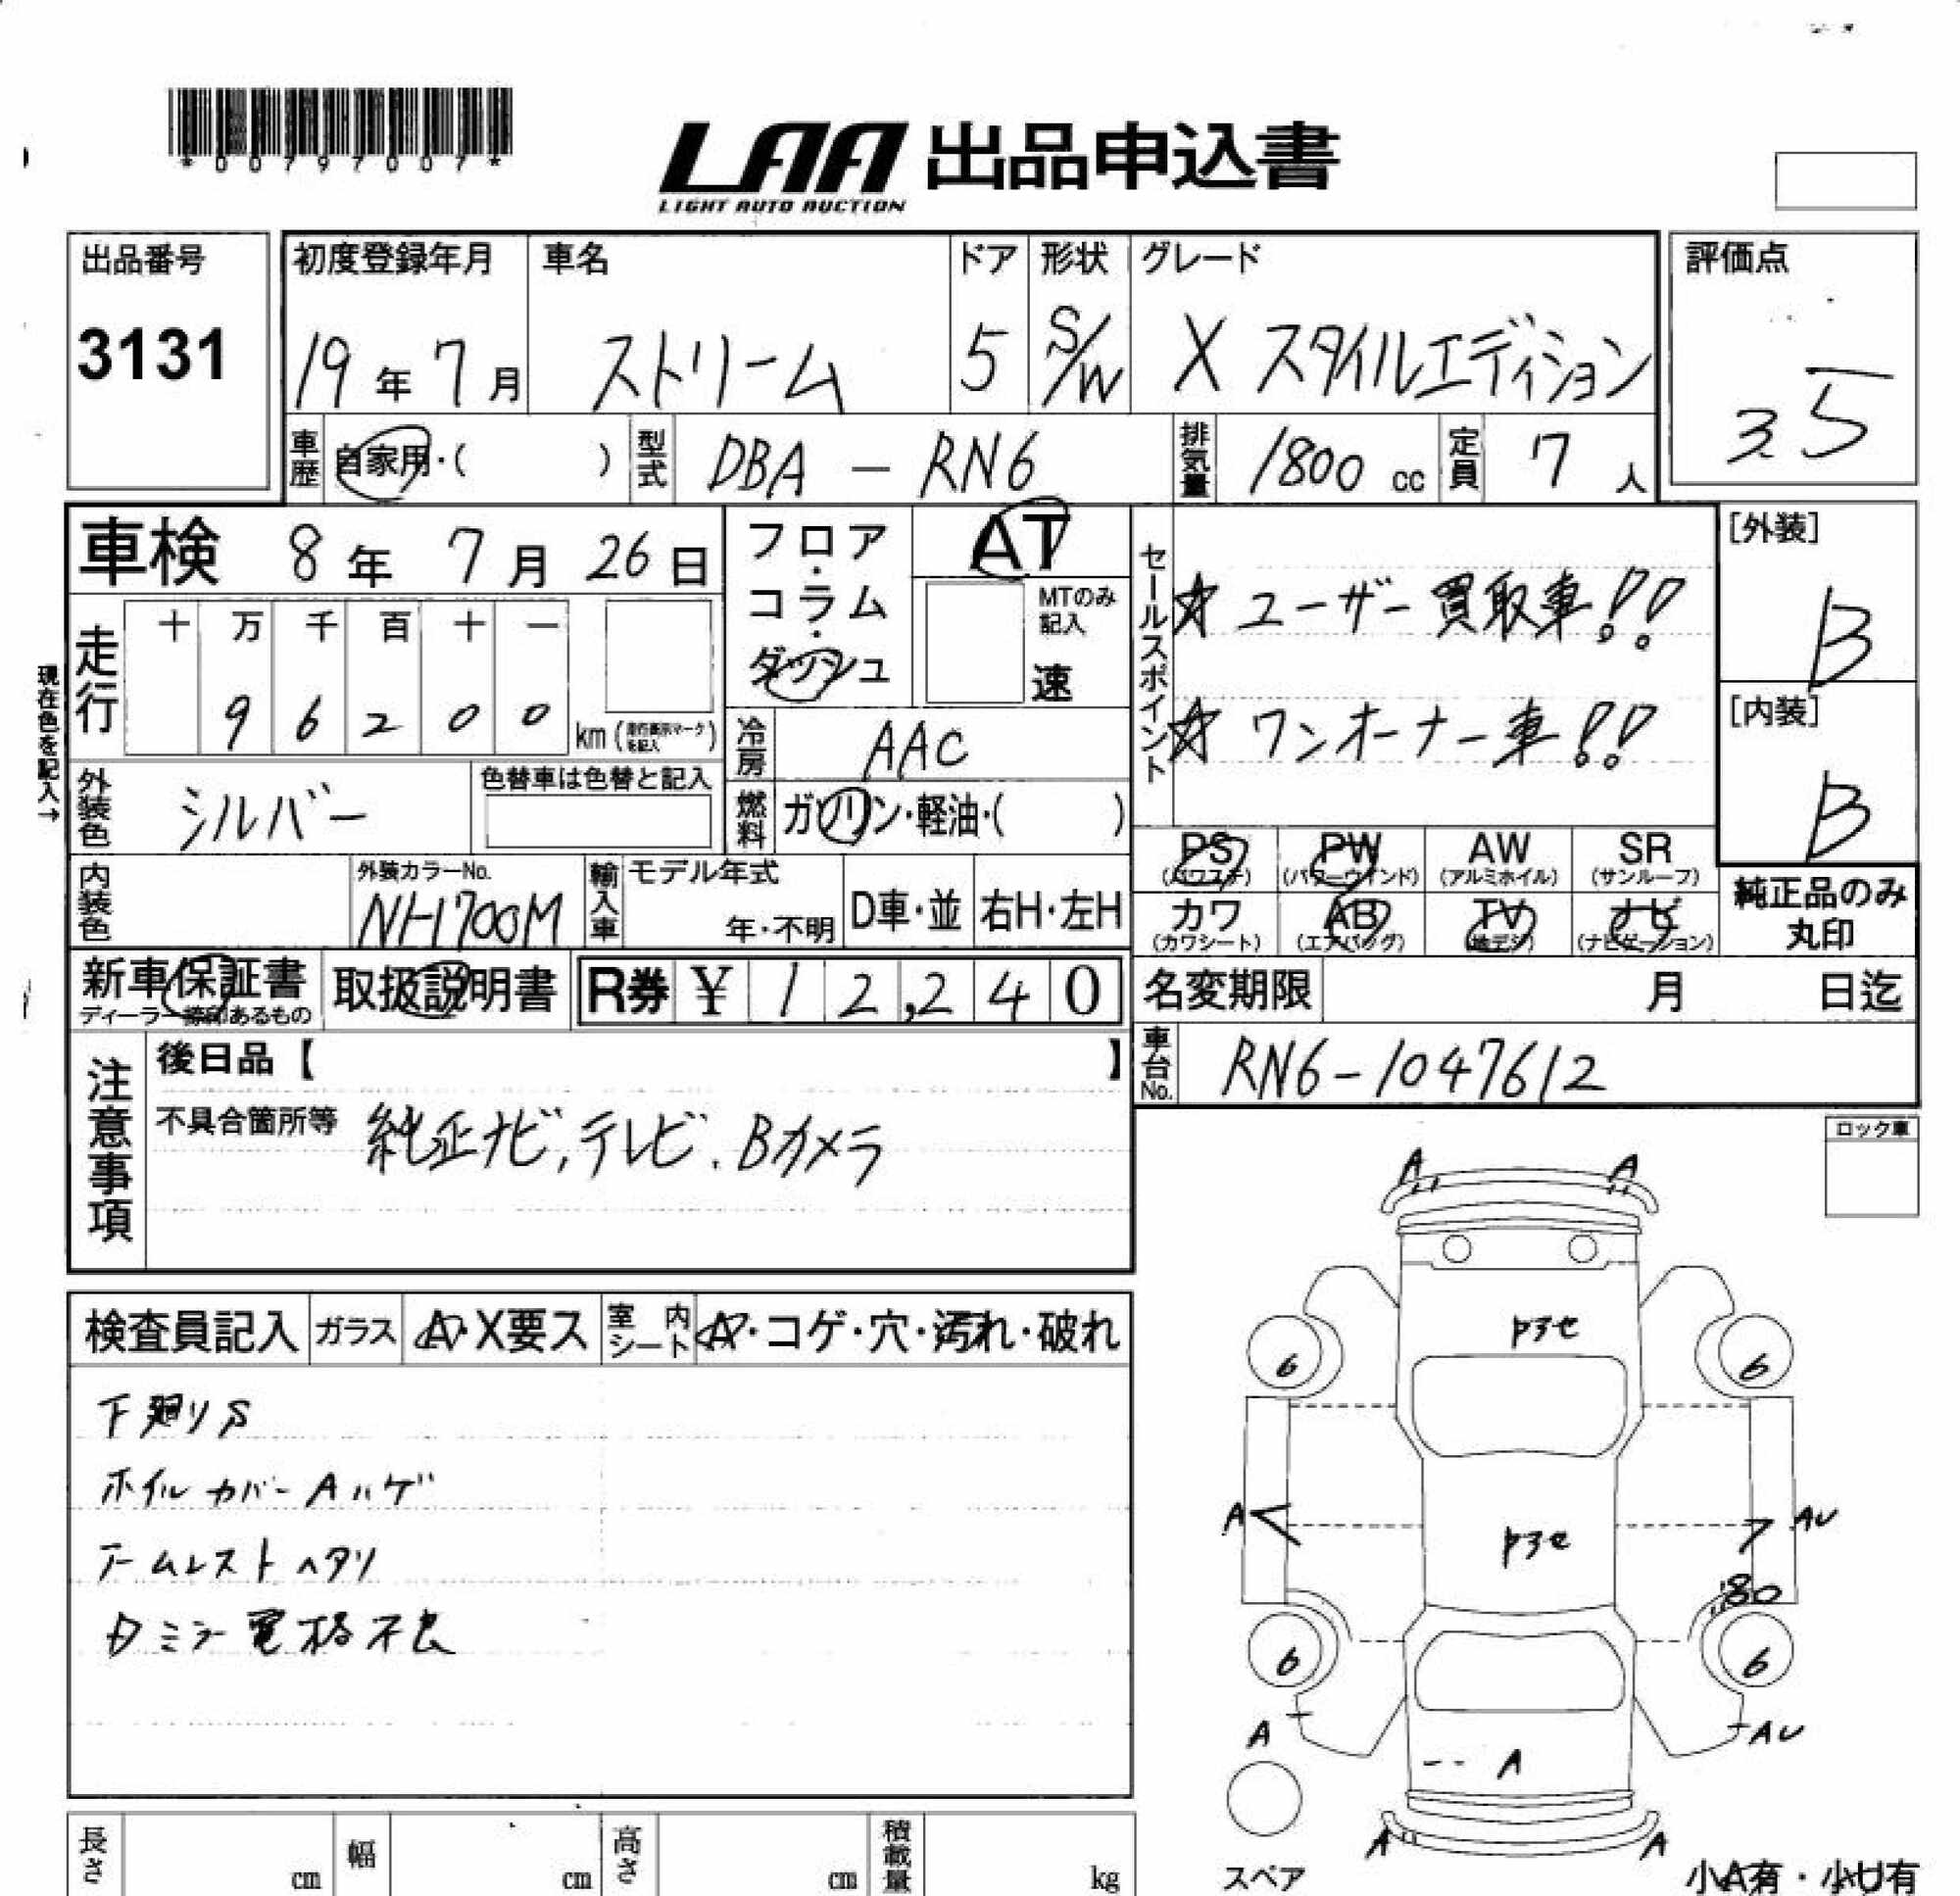 *00797007*
LAA 出品申込書
LIGHT AUTO AUCTION
出品番号
3131
初度登録年月
19年 7月
車名
ストリーム
ドア
5
形状
S/W
グレード
X スタイルエディション
評価点
3.5
車歴
自家用・( )
型式
DBA - RN6
排気量
1800 cc
定員
7 人
車検 8年 7月 26日
フロア・コラム・ダッシュ
AT
MTのみ記入
速
セールスポイント
☆ ユーザー買取車!!
☆ ワンオーナー車!!
[外装]
B
[内装]
B
現在色を記入→
走行
十 万 千 百 十 一
9 6 2 0 0
km (走行表示マークを記入)
冷房
AAC
燃料
ガソリン・軽油・( )
外装色
シルバー
色替車は色替と記入
内装色
外装カラーNo.
NH700M
輸入車
モデル年式
年・不明
D車・並
右H・左H
PS
(パワステ)
PW
(パワーウインド)
AW
(アルミホイル)
SR
(サンルーフ)
カワ
(カワシート)
AB
(エアバッグ)
TV
(地デジ)
ナビ
(ナビゲーション)
純正品のみ
丸印
新車保証書
ディーラー捺印あるもの
取扱説明書
R券 ¥ 12,240
名変期限
月 日迄
車台No.
RN6-1047612
注意事項
後日品【 】
不具合箇所等
純正ナビ, テレビ. Bカメラ
ロック車
検査員記入
ガラス
A・X要ス
室内シート
A・コゲ・穴・汚れ・破れ
下廻りS
ホイルカバー Aハゲ
アームレスト ヘタリ
ミラー電格不良
A A
6 6
A AU
80
6 6
A AU
A
A A
スペア
小A有・小U有
長さ cm
幅 cm
高さ cm
積載量 kg